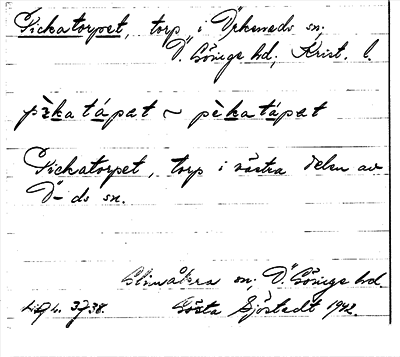 Pickatorpet, torp i Örkeneds sn,
Ö. Göinge hd, Krist. l.
pèkatápat ~ pèkatápat
Pickatorpet, torp i västra delen av
Ö-ds sn.
Glimåkra sn. Ö. Göinge hd.
Gösta Sjöstedt 1942.